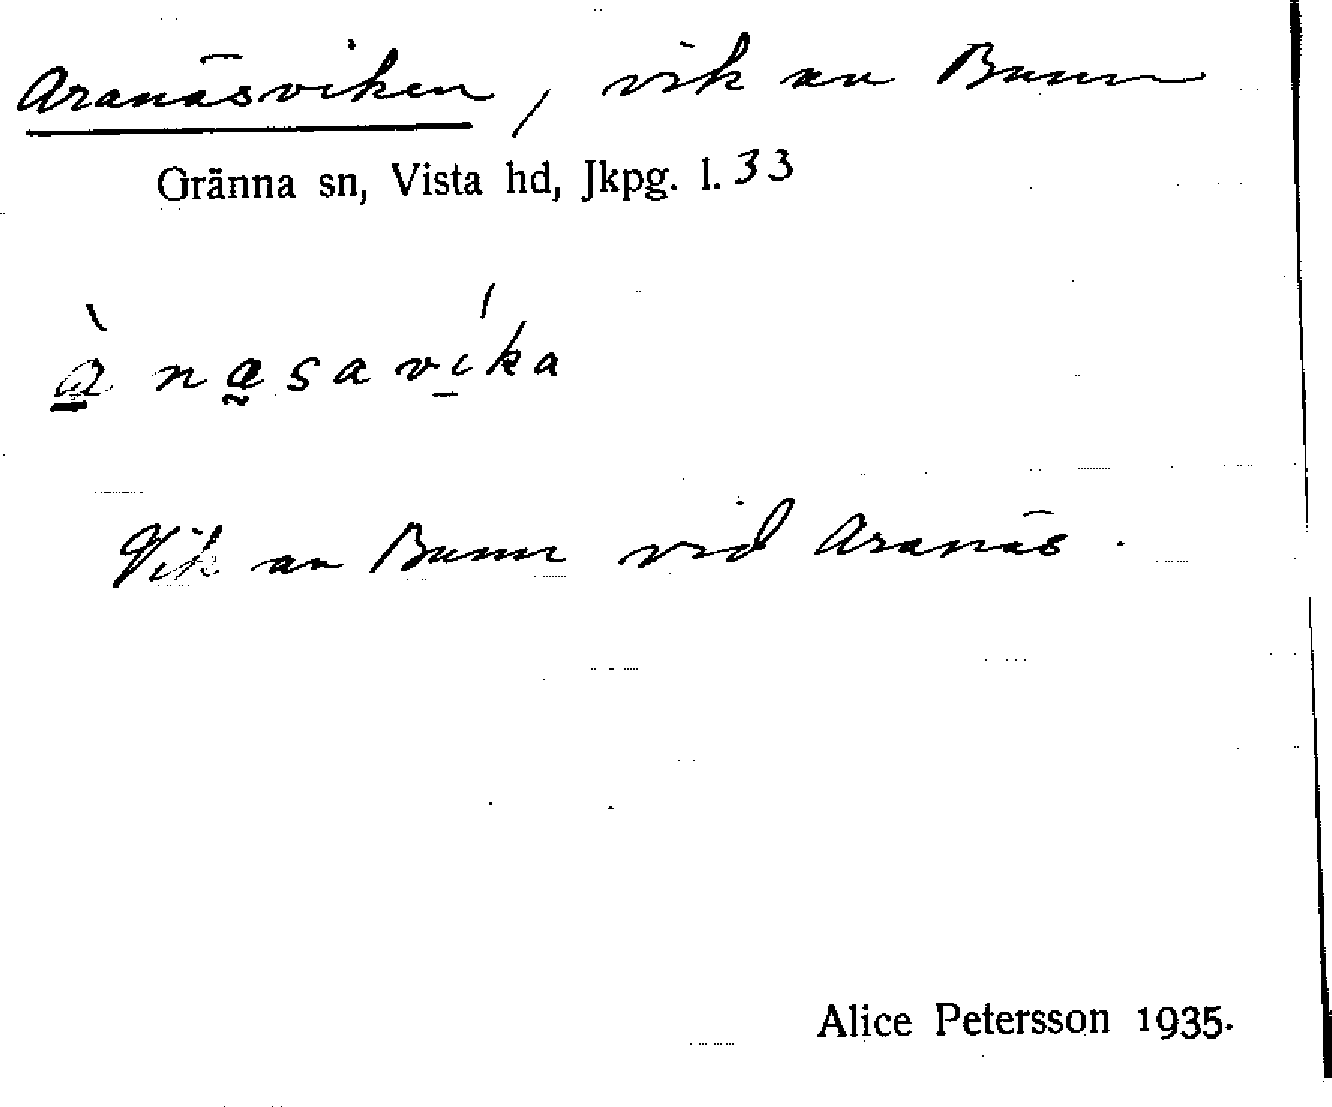 Aranäsviken, vik av Bunn
Gränna sn, Vista hd, Jkpg. l. 33
à næsavíka
Vik av Bunn vid Aranäs.
Alice Petersson 1935.